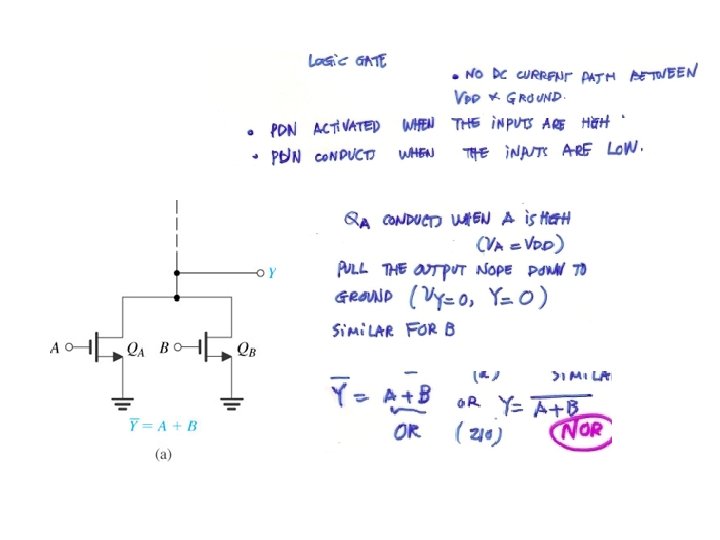 LOGIC GATE
• NO DC CURRENT PATH BETWEEN
VDD & GROUND.
• PDN ACTIVATED WHEN THE INPUTS ARE HIGH
• PUN CONDUCTS WHEN THE INPUTS ARE LOW.
QA CONDUCTS WHEN A IS HIGH
(VA = VDD)
PULL THE OUTPUT NODE DOWN TO
GROUND (VY=0, Y=0)
SIMILAR FOR B
Y
A QA B QB
Y̅ = A + B
(a)
Y̅ = A + B OR Y= A+B̅
SIMILA
OR NOR